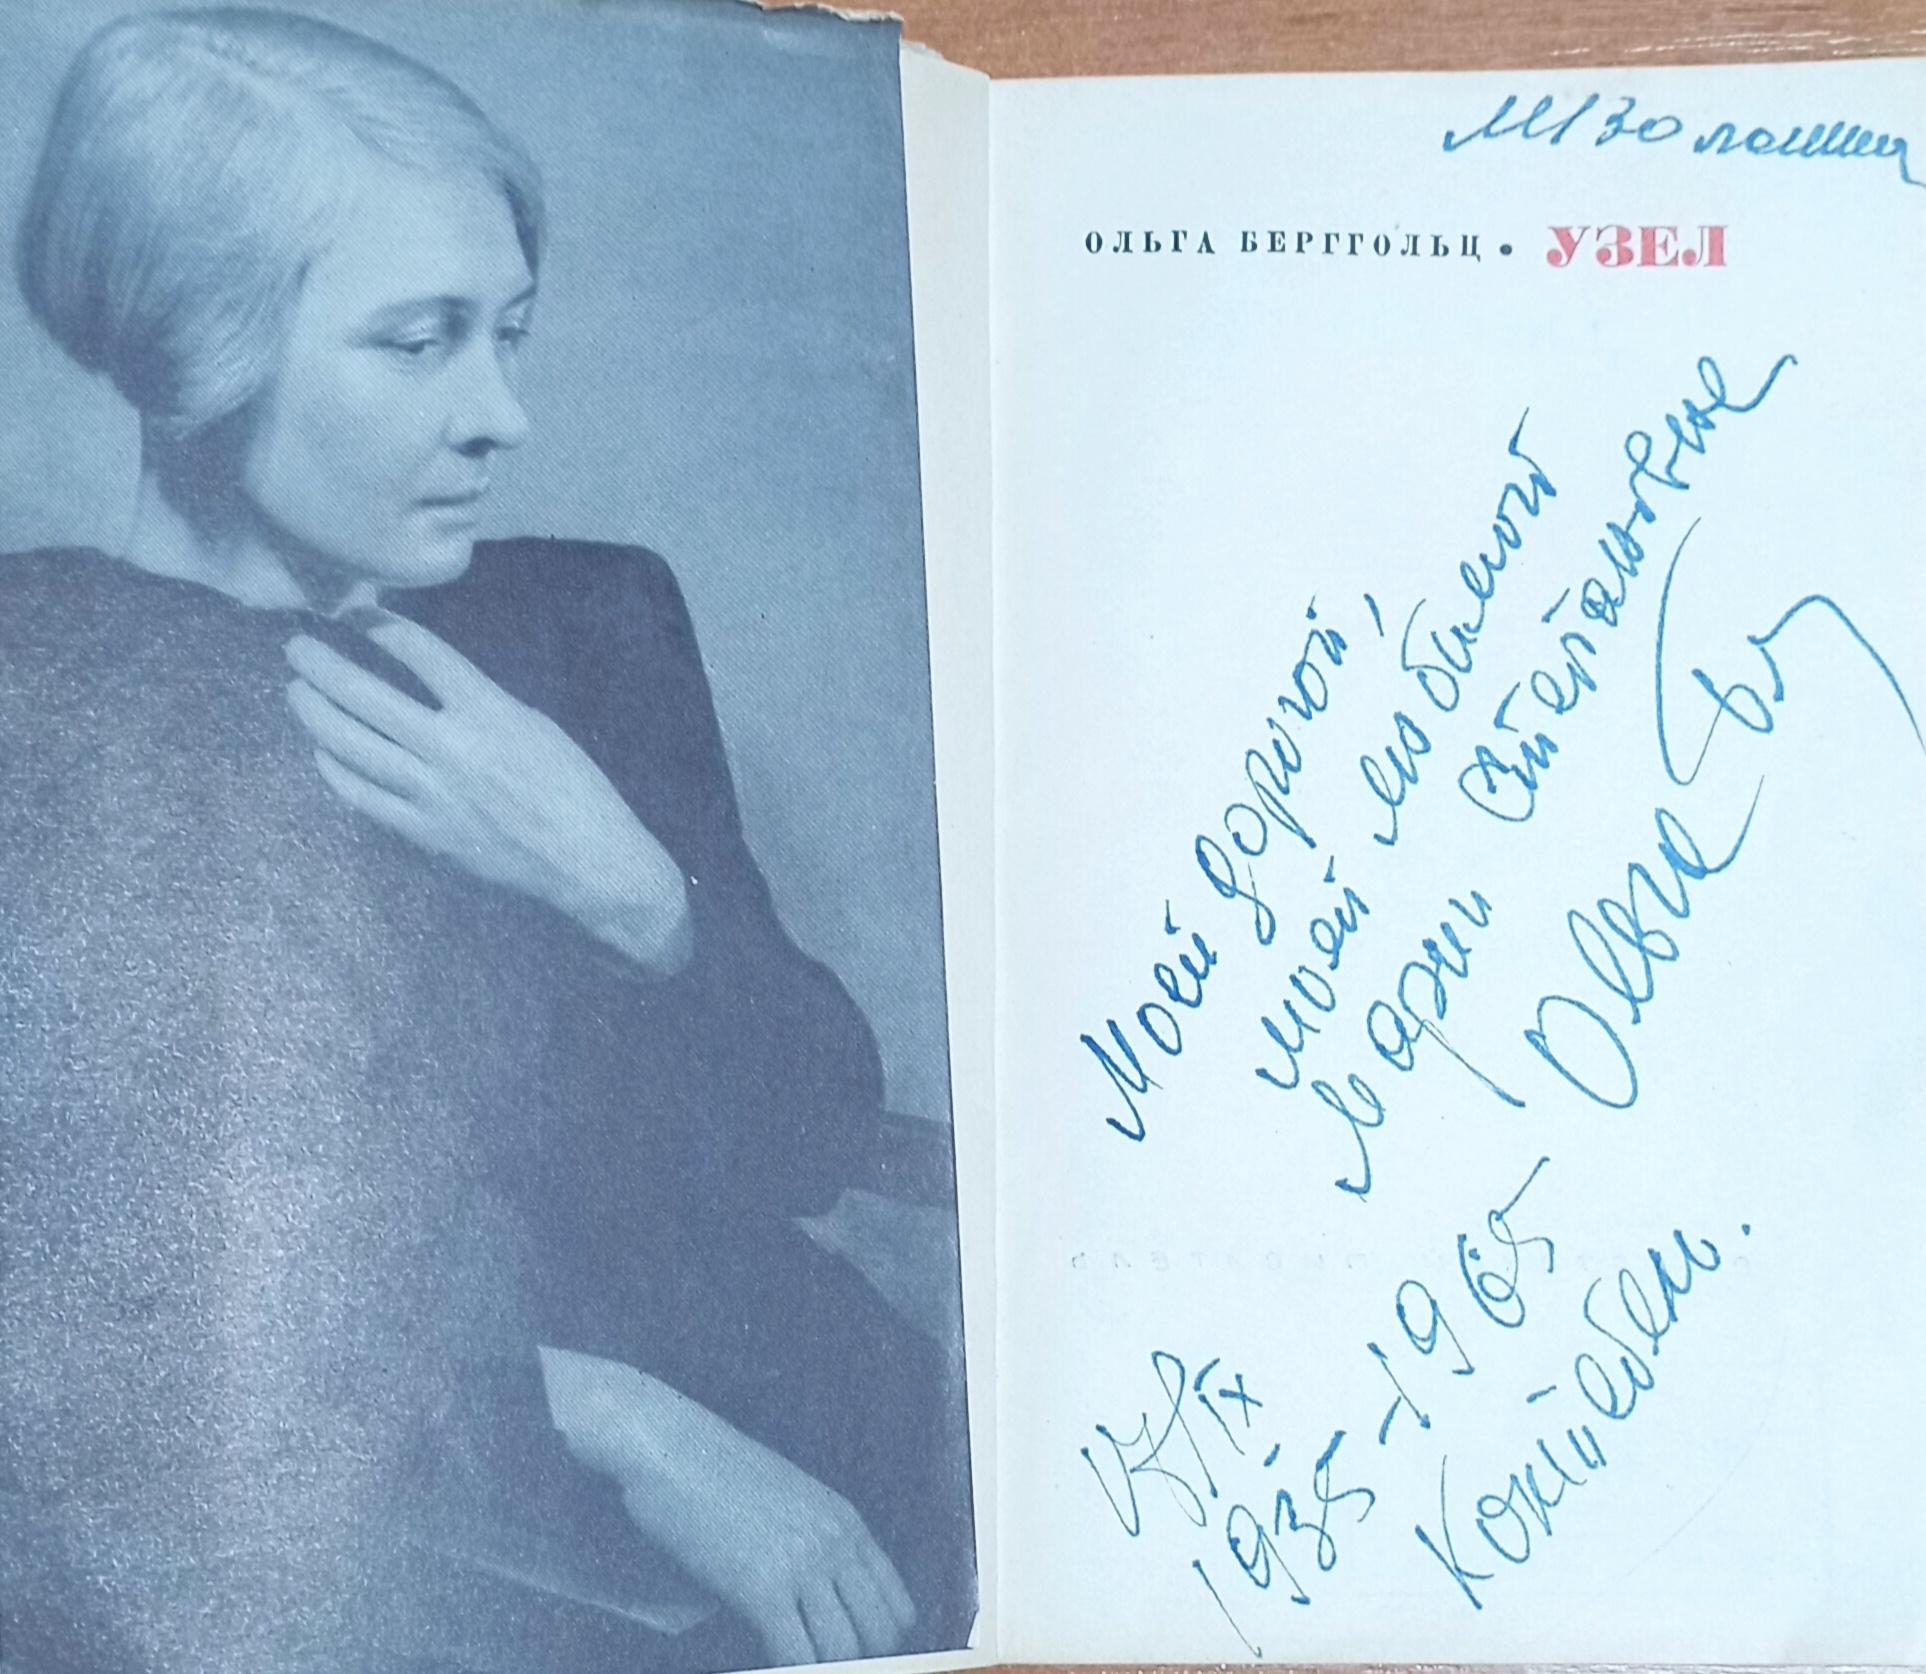 ОЛЬГА БЕРГГОЛЬЦ • УЗЕЛ
Моей дорогой,
моей любимой
Марии Степановне
Ольга
IX
1935-1965
Коктебель.